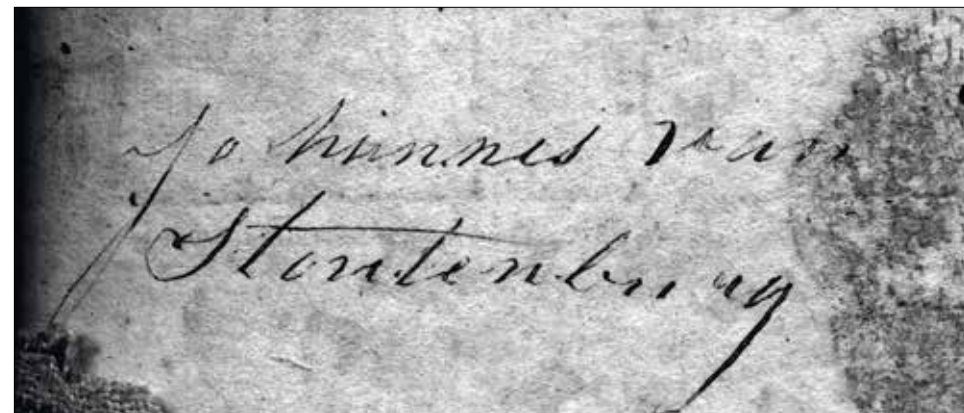 Johannes van
Stoutenburg